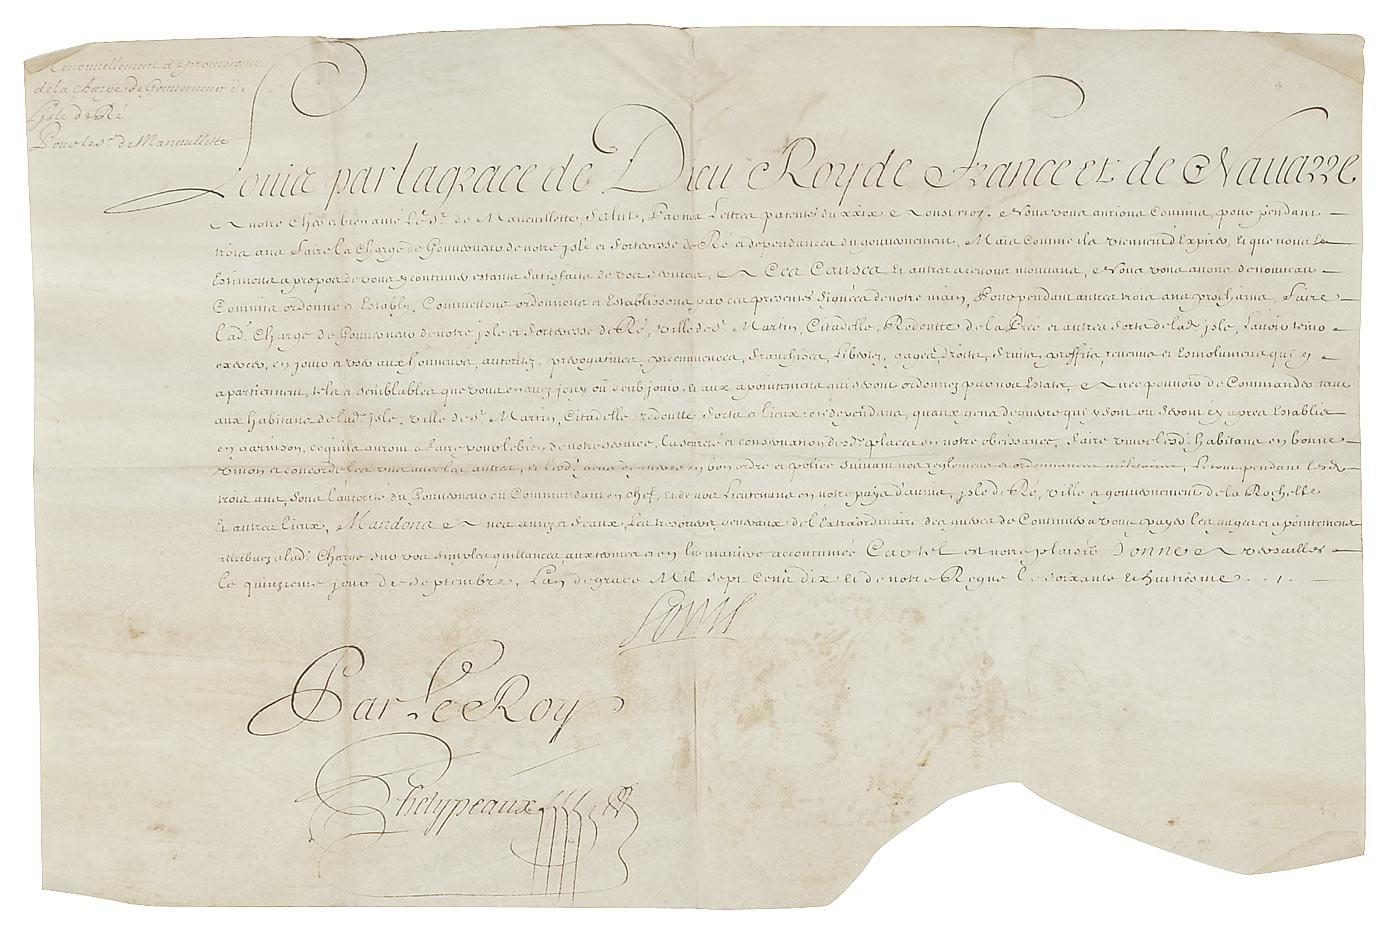 Renouuellement et prouision
de la Charge de Gouuerneur de
l'Isle de Ré
Pour le sr. de Maneuillette
Louis par la grace de Dieu Roy de France et de Nauarre
A notre Cher et bien amé Le Sr. de Maneuillette, Salut, Par nos Lettres patentes du xxix Nous vous aurions Commis, pour pendant
trois ans faire la Charge de Gouuerneur de notre isle et forteresse de Ré et dependances du gouuernement, Mais Comme ils viennent d'Expirer, Et que nous
Estimons a propos de vous y continuer estans satisfaits de vos seruices, A Ces Causes Et autres a ce nous mouuans, Nous vous auons de nouueau
Commis ordonné et Estably, Commettons ordonnons et Establissons par ces presentes signées de notre main, Pour pendant autres trois ans prochains, faire
lad. Charge de Gouuerneur de notre isle et forteresse de Ré, ville de St. Martin, Citadelle, Redoutte de la Prée et autres forts de lad. isle, Lauoir tenir
exercer, en jouir et vser aux honneurs, autoritez, prerogatiues, preeminences, franchises, Libertez, gages, droits, fruits, proffits, reuenus et Esmolumens qui y
apartiennent, tels et semblables que vous en auez jouy ou deub jouir, Et aux apointemens qui seront ordonnez par nos Estats, Auec pouuoir de Commander tant
aux habitans de lad. isle, ville de St. Martin, Citadelle, redoutte, forts et lieux en dependans, quaux gens de guerre qui y sont ou seront cy apres Establis
en garnison, ce quils auront a faire pour le bien de notre seruice, la seureté et conseruation desd. places en notre obeissance, faire viure lesd. habitans en bonne
vnion et concorde les vns auec les autres, et lesd. gens de guerre en bon ordre et police suiuant nos reglemens et ordonnances militaires, Le tout pendant lesd.
trois ans, sous l'autorité du Gouuerneur ou Commandant en chef, et de nos Lieutenans en notre pays d'aunis, isle de Ré, ville et gouuernement de la Rochelle
Et autres lieux, Mandons A nos amez et feaux, Les tresoriers generaux de l'Extraordinaire des guerres de Continuer a vous payer les gages et apointemens
attribuez a lad. Charge sur vos simples quittances, aux termes et en la maniere accoutumée Car tel est notre plaisir Donné A versailles
le quinzieme jour de septembre, L'an de grace Mil sept Cens dix Et de notre Regne le soixante et huitiesme . . .
Louis
Par Le Roy
Phelypeaux